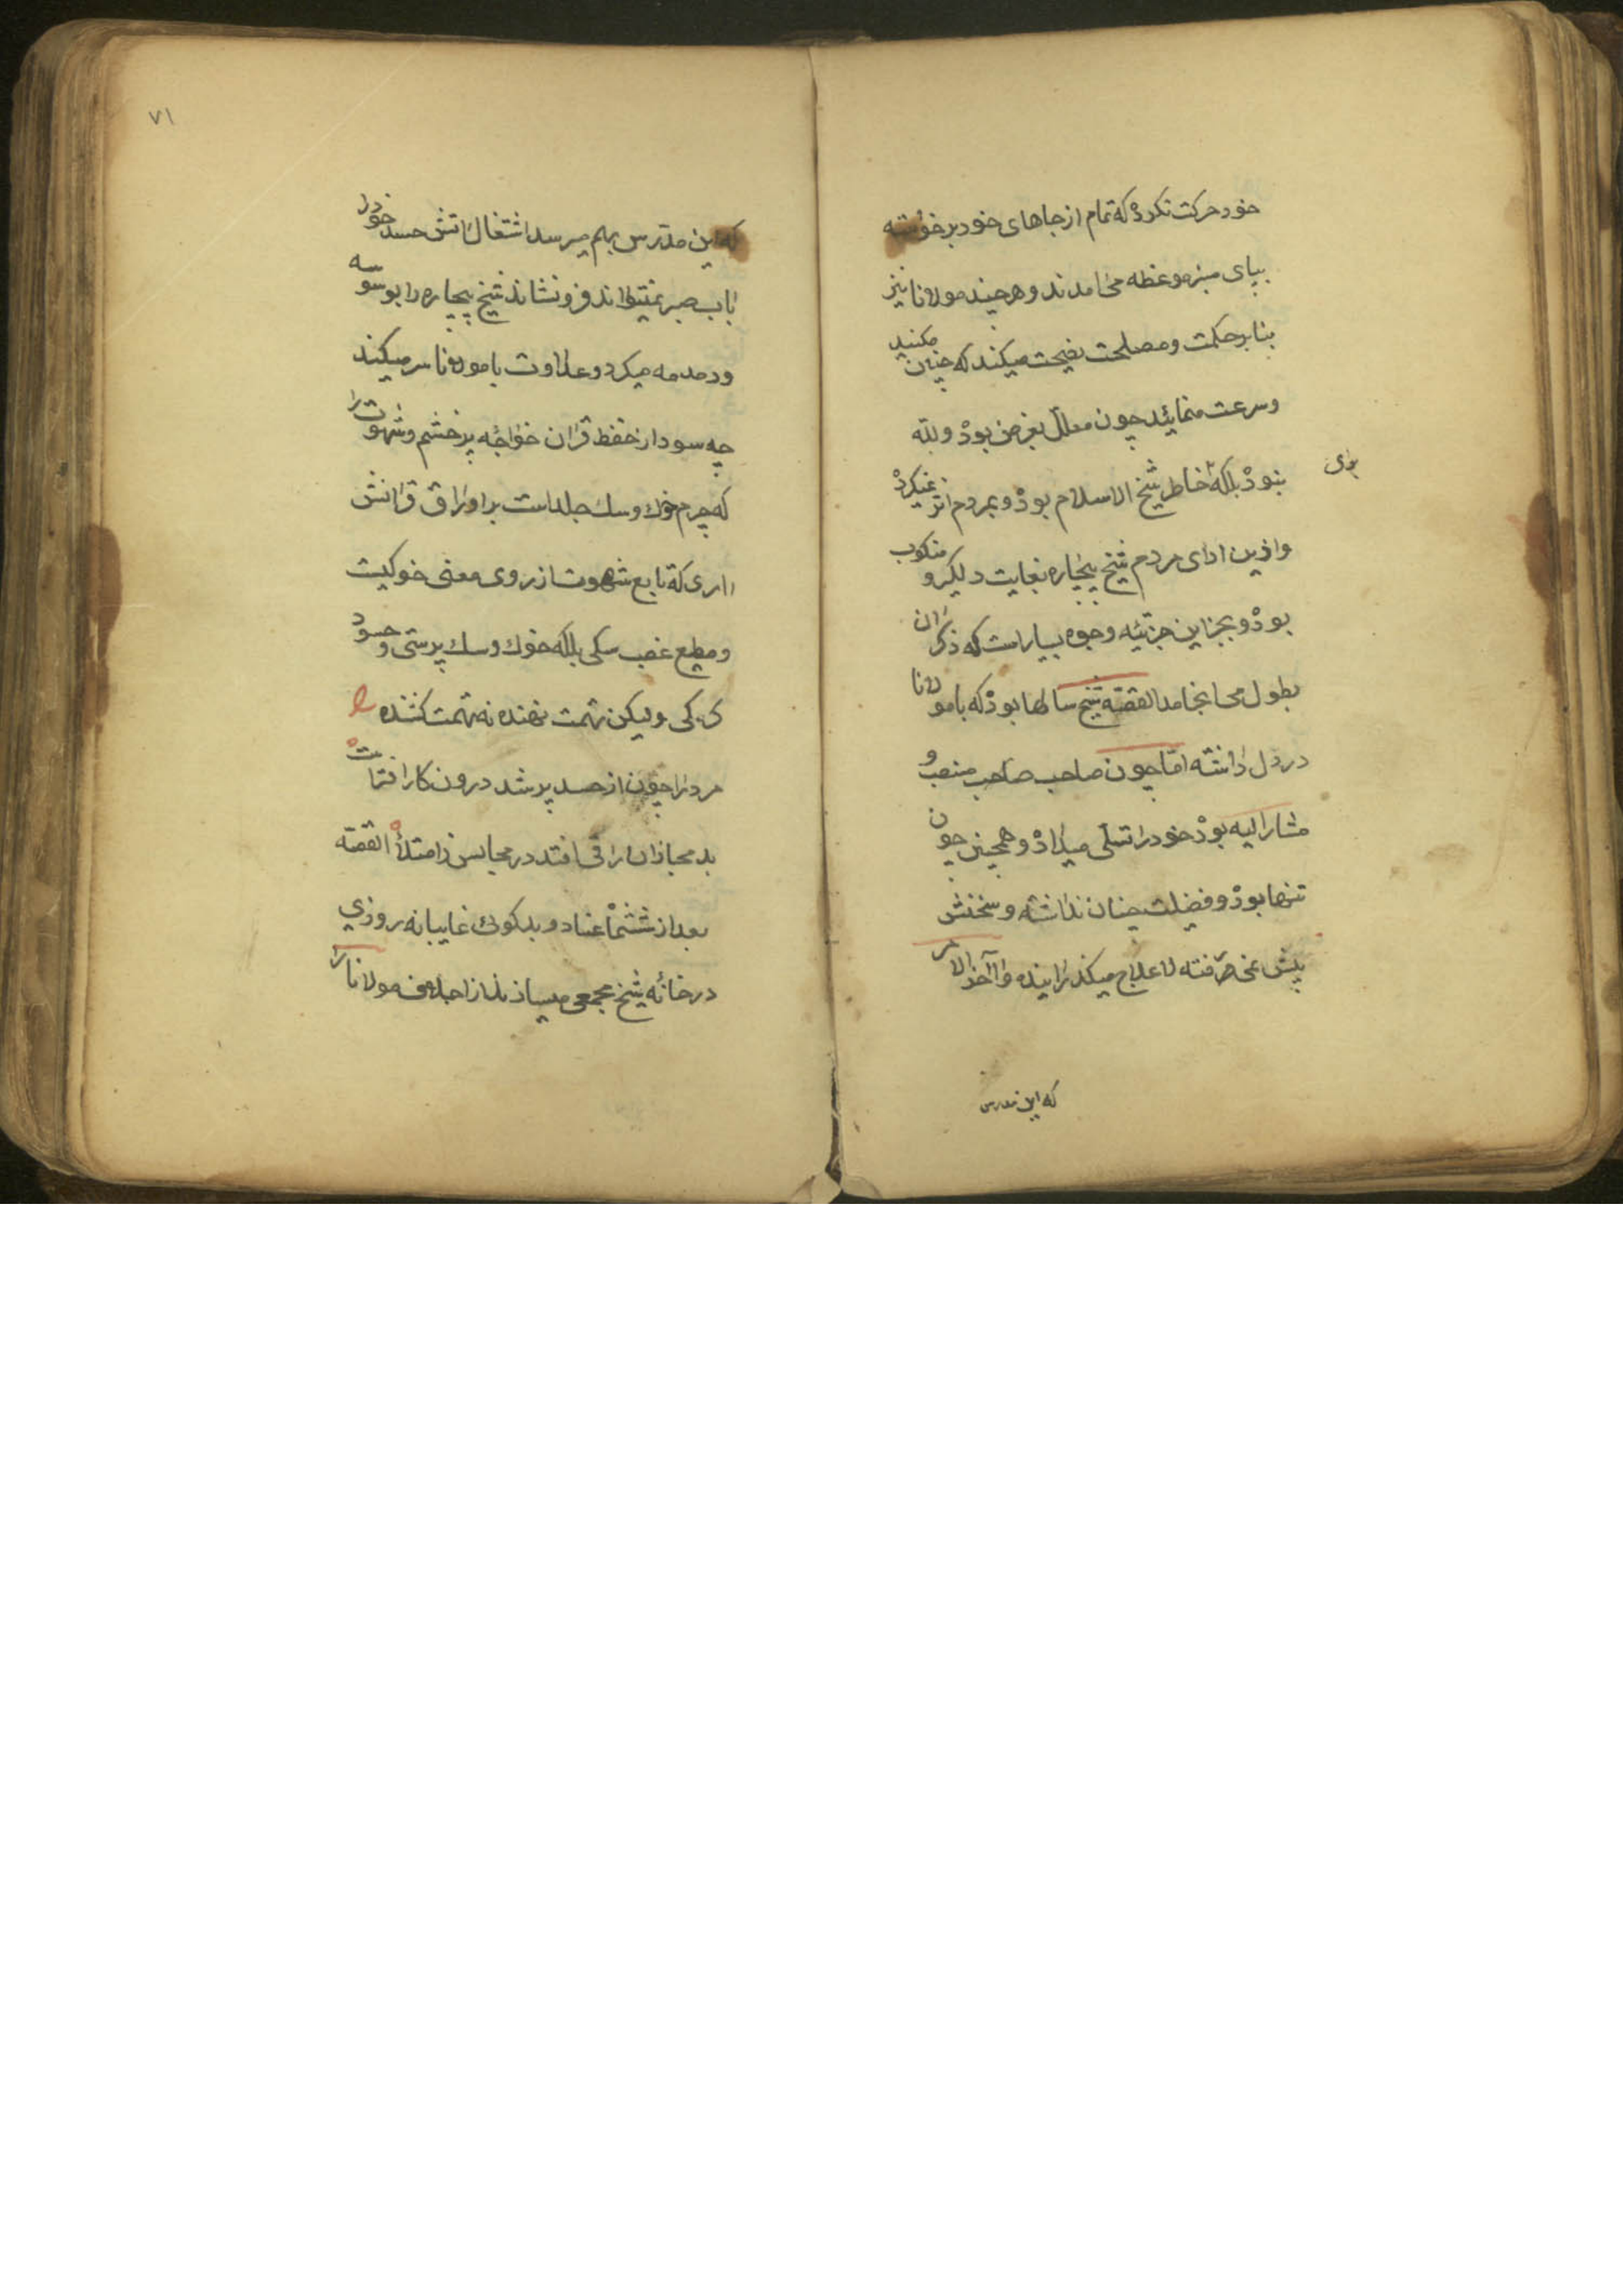 خود حرکت نکرده که تمام از جاهای خود برخواسته
بپای منبر موعظه می امدند و هرچند مولانا نیز
بنابر حکمت و مصلحت نصیحت میکند که چنین مکنید
و سرعت منمایید چون معلل بغرض بود و لله
نبود بلکه خاطر شیخ الاسلام بود و بمردم اثر نمیکرد
برای
و ازین ادای مردم شیخ بیچاره بغایت دلگیر و منکوب
بود و بجز این جزئیه وجوه بسیار است که ذکر ان
بطول می انجامد القصه شیخ سالها بود که با مولانا
در دل داشته اما چون صاحب صاحب منصب و
مشار الیه بود خود را تسلی میداد و همچنین چون
تنها بود و فضلت چنان نداشته و سخنش
پیش نمی رفته لاعلاج میکذرانیده و آخر الامر
که این مدرس
۷۱
که این مدرس بهم میرسد اشتغال اتش حسد خود را
باب صبر نمیتواند فرو نشاند شیخ بیچاره را بوسوسه
و دمدمه میکرد و عداوت با مولانا سر میکند
چه سود از حفظ قران خواجه پر خشم و شهوت را
که چرم خوک و سک جلد است بر اوراق قرانش
اری که تابع شهوت از روی معنی خوکیست
و مطیع غضب سکی بلکه خوک و سک پرستی و حسود
کی ولیکن تهمت نهنده نه تهمت کشنده
مرد را چون از حسد پر شد درون کار افتاست
بد مجازان را قی افتد در مجالس ز امتلا القصه
بعد از عناد و بدکوئی غایبانه روزی
در خانه شیخ مجمعی میسازند از اجلاف مولانا را